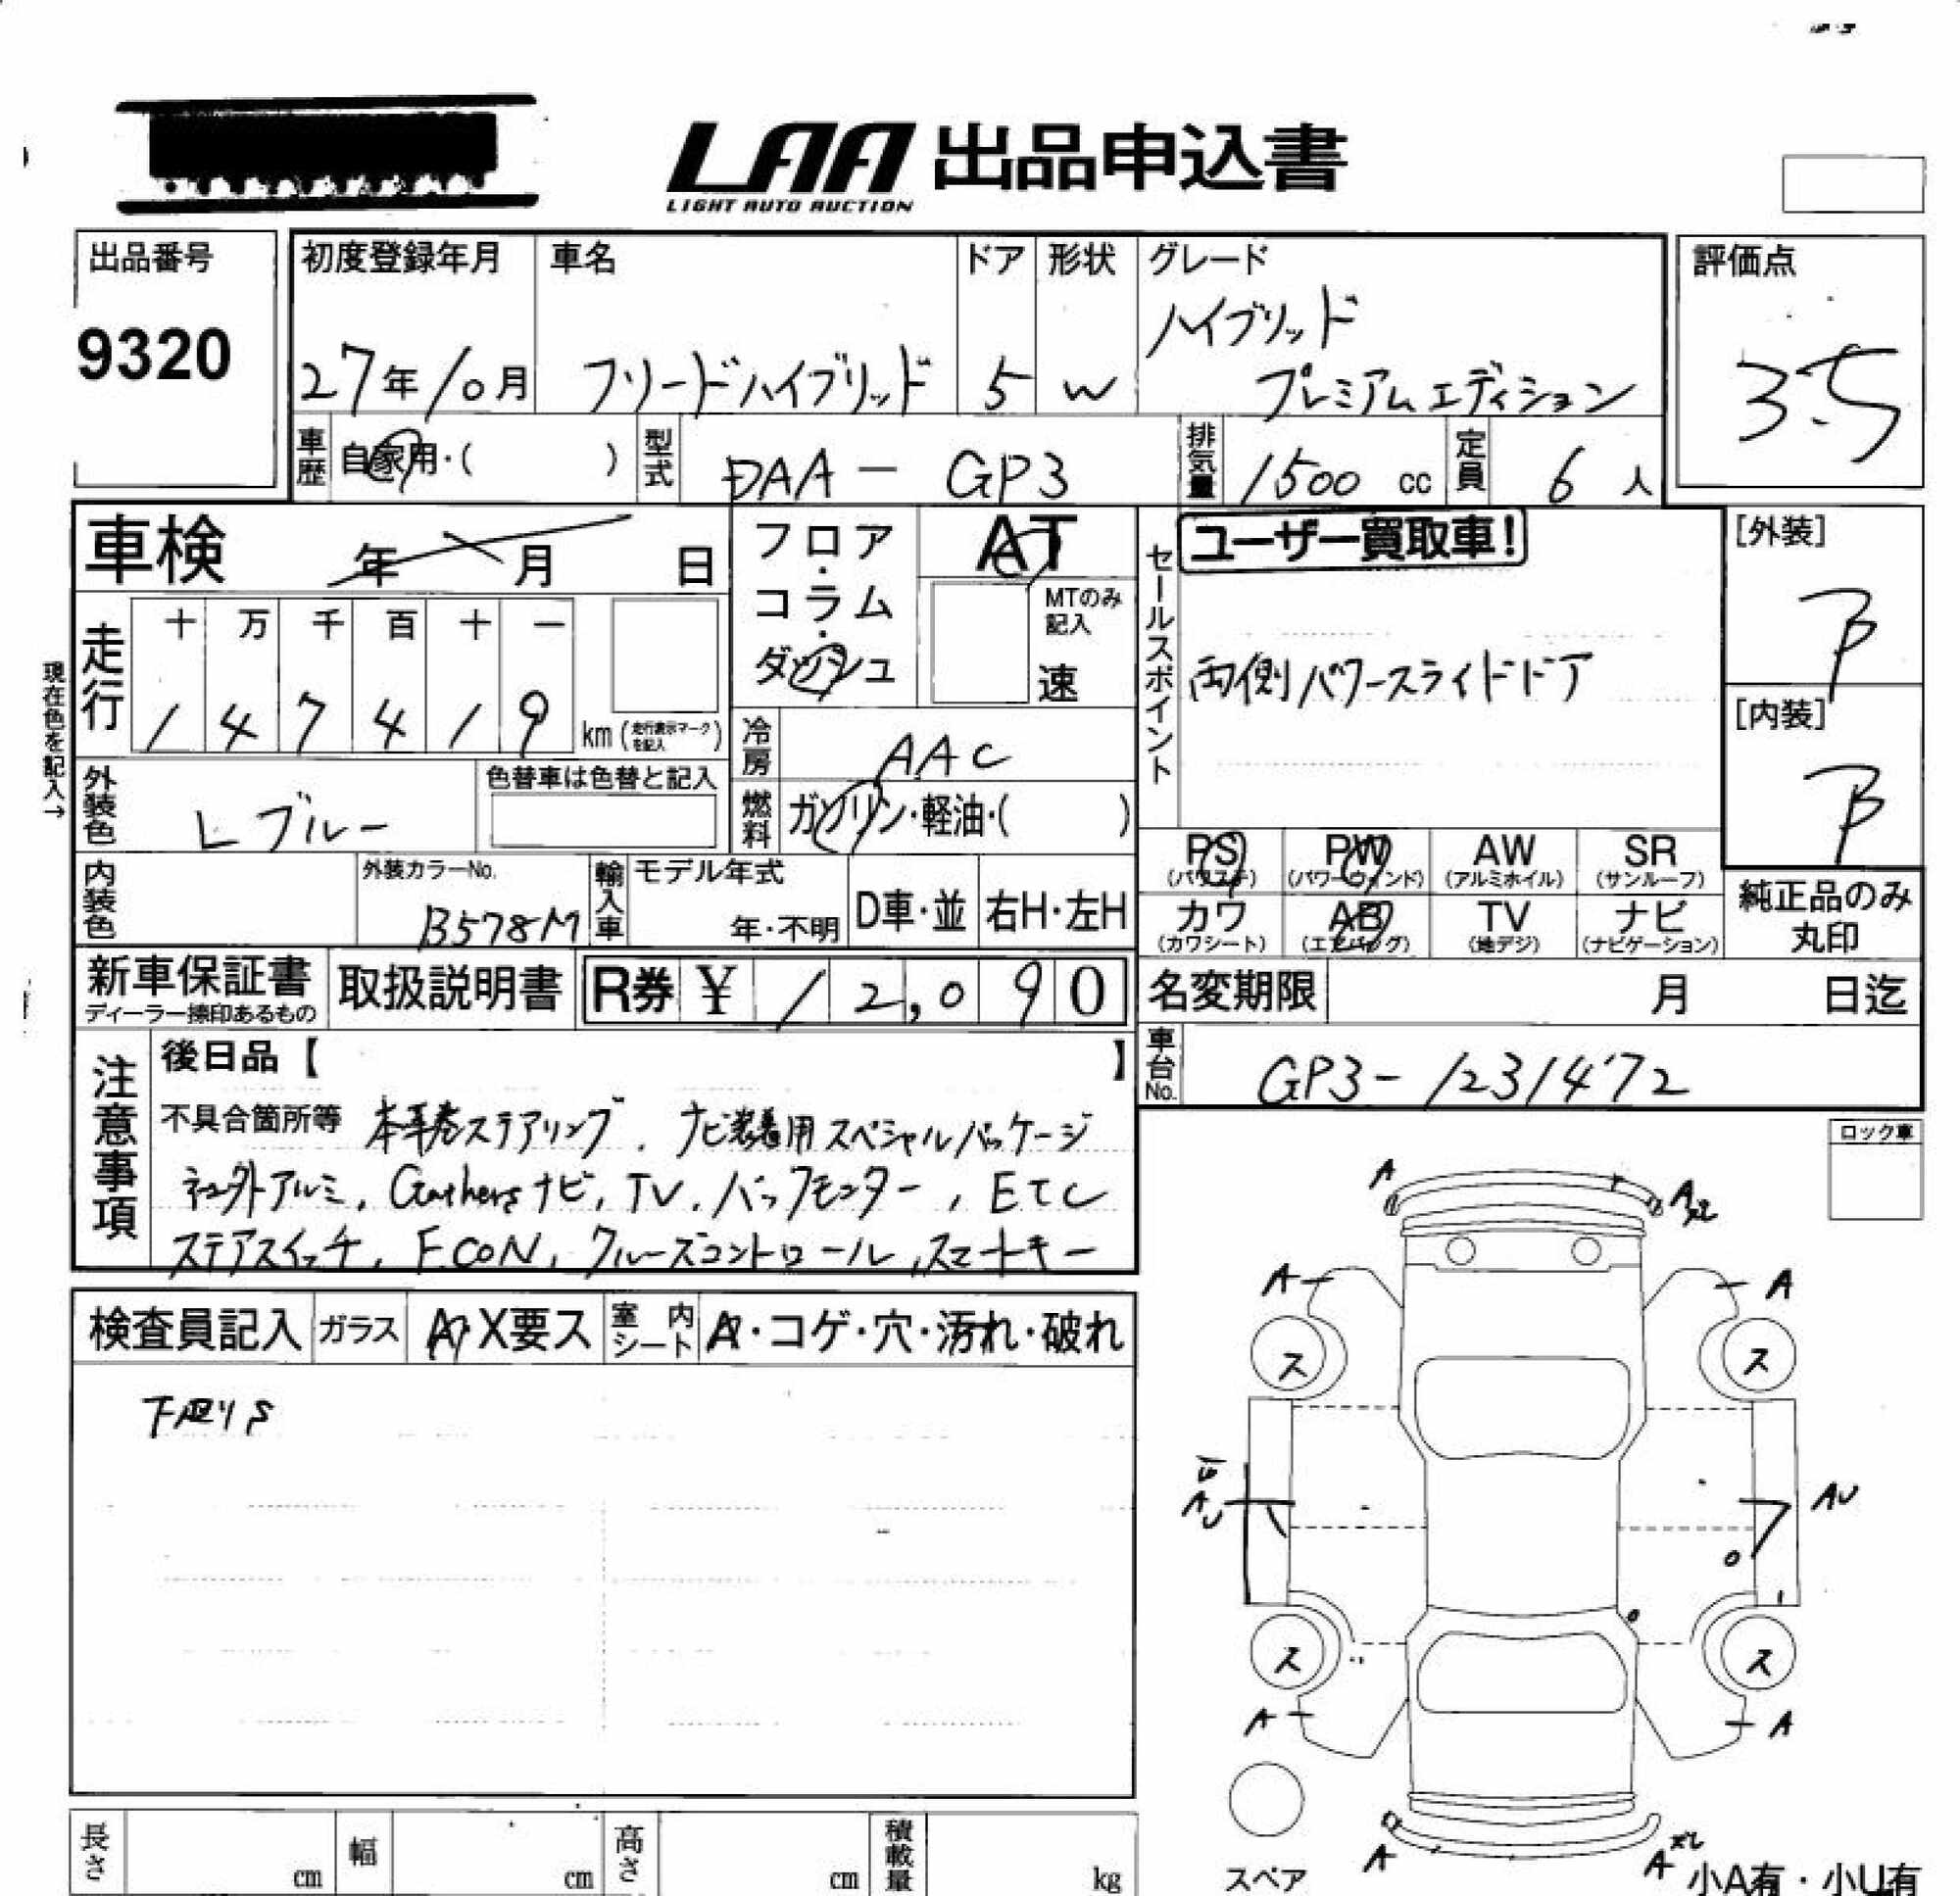 LAA 出品申込書
LIGHT AUTO AUCTION
出品番号
9320
初度登録年月
27年10月
車名
フリードハイブリッド
ドア
5
形状
W
グレード
ハイブリッド
プレミアムエディション
評価点
3.5
車歴
自家用・( )
型式
DAA-GP3
排気量
1500 cc
定員
6人
車検 年 月 日
フロア・コラム・ダッシュ
AT
MTのみ記入
速
セールスポイント
ユーザー買取車!
両側パワースライドドア
[外装]
B
[内装]
B
現在色を記入→
走行
十 万 千 百 十 一
1 4 7 4 1 9
km (走行表示マークを記入)
冷房
AAC
外装色
Lブルー
色替車は色替と記入
燃料
ガソリン・軽油・( )
PS (パワステ)
PW (パワーウィンド)
AW (アルミホイル)
SR (サンルーフ)
カワ (カワシート)
AB (エアバッグ)
TV (地デジ)
ナビ (ナビゲーション)
純正品のみ丸印
内装色
外装カラーNo.
B578M
輸入車
モデル年式
年・不明
D車・並
右H・左H
新車保証書
ディーラー捺印あるもの
取扱説明書
R券 ¥ 12,090
名変期限 月 日迄
車台No.
GP3-1231472
注意事項
後日品【 】
不具合箇所等 本革巻ステアリング、ナビ装着用スペシャルパッケージ
社外アルミ、Gathersナビ、TV、バックモニター、ETC
ステアスイッチ、F.CON、クルーズコントロール、スマートキー
ロック車
検査員記入
ガラス
A X要ス
室内シート
A・コゲ・穴・汚れ・破れ
下廻りS
A
A
A
A
ス
ス
AU
AU
ス
ス
A
A
A
A
スペア
小A有・小U有
長さ cm
幅 cm
高さ cm
積載量 kg